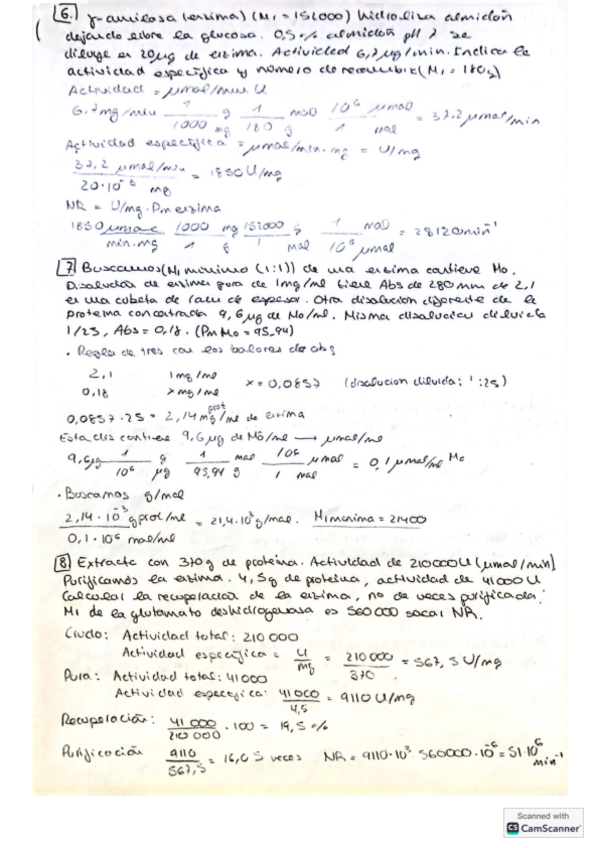 6. γ-amilasa (enzima) (M₁ = 152000) hidroliza almidón
dejando libre la glucosa. 0,5% almidón pH 7 se
diluye en 20 µg de enzima. Actividad 6,7 µg/min. Indica la
actividad específica y número de recambio (M₁ = 180g)
Actividad = µmol/min U
6,7 mg/min 1/1000 g/mg 1/180 mol/g 10⁶/1 µmol/mol = 37,2 µmol/min
Actividad específica = µmol/min·mg = U/mg
37,2 µmol/min / 20·10⁻³ mg = 1850 U/mg
NR = U/mg · Pm enzima
1850 µmol/min·mg 1000/1 mg/g 152000/1 g/mol 1/10⁶ mol/µmol = 28120 min⁻¹
7 Buscamos (M₁ mínimo (1:1)) de una enzima contiene Mo.
Disolución de enzima pura de 1mg/ml tiene Abs de 280 mm de 2,1
en una cubeta de 1cm de espesor. Otra disolución diferente de la
proteína concentrada 9,6 µg de Mo/ml. Misma disolución diluida
1/25, Abs = 0,18. (Pm Mo = 95,94)
• Regla de tres con los balores de abs
2,1 1 mg/ml
0,18 x mg/ml x = 0,0857 (disolucion diluida: 1:25)
0,0857 · 25 = 2,14 mg prot/ml de enzima
Esta dis contiene 9,6 µg de Mo/ml → µmol/ml
9,6 µg 1/10⁶ g/µg 1/95,94 mol/g 10⁶/1 µmol/mol = 0,1 µmol/ml Mo
• Buscamos g/mol
2,14·10⁻³ g prot/ml / 0,1·10⁻⁶ mol/ml = 21,4·10³ g/mol. M₁ minima = 21400
8 Extracto con 370 g de proteína. Actividad de 210000 U (µmol/min)
Purificamos la enzima. 4,5g de proteína, actividad de 41000 U
Calcular la recuperación de la enzima, no de veces purificada.
M₁ de la glutamato deshidrogenasa es 560000 sacar NR.
Crudo: Actividad total: 210 000
Actividad específica = U/mg = 210 000/370 = 567,5 U/mg
Pura: Actividad total: 41000
Actividad específica: 41000/4,5 = 9110 U/mg
Recuperación: 41 000/210 000 · 100 = 19,5 %
Purificación 9110/567,5 = 16,05 veces NR = 9110·10³ 560000·10⁻⁶ = 51·10⁶ min⁻¹
Scanned with
CS CamScanner